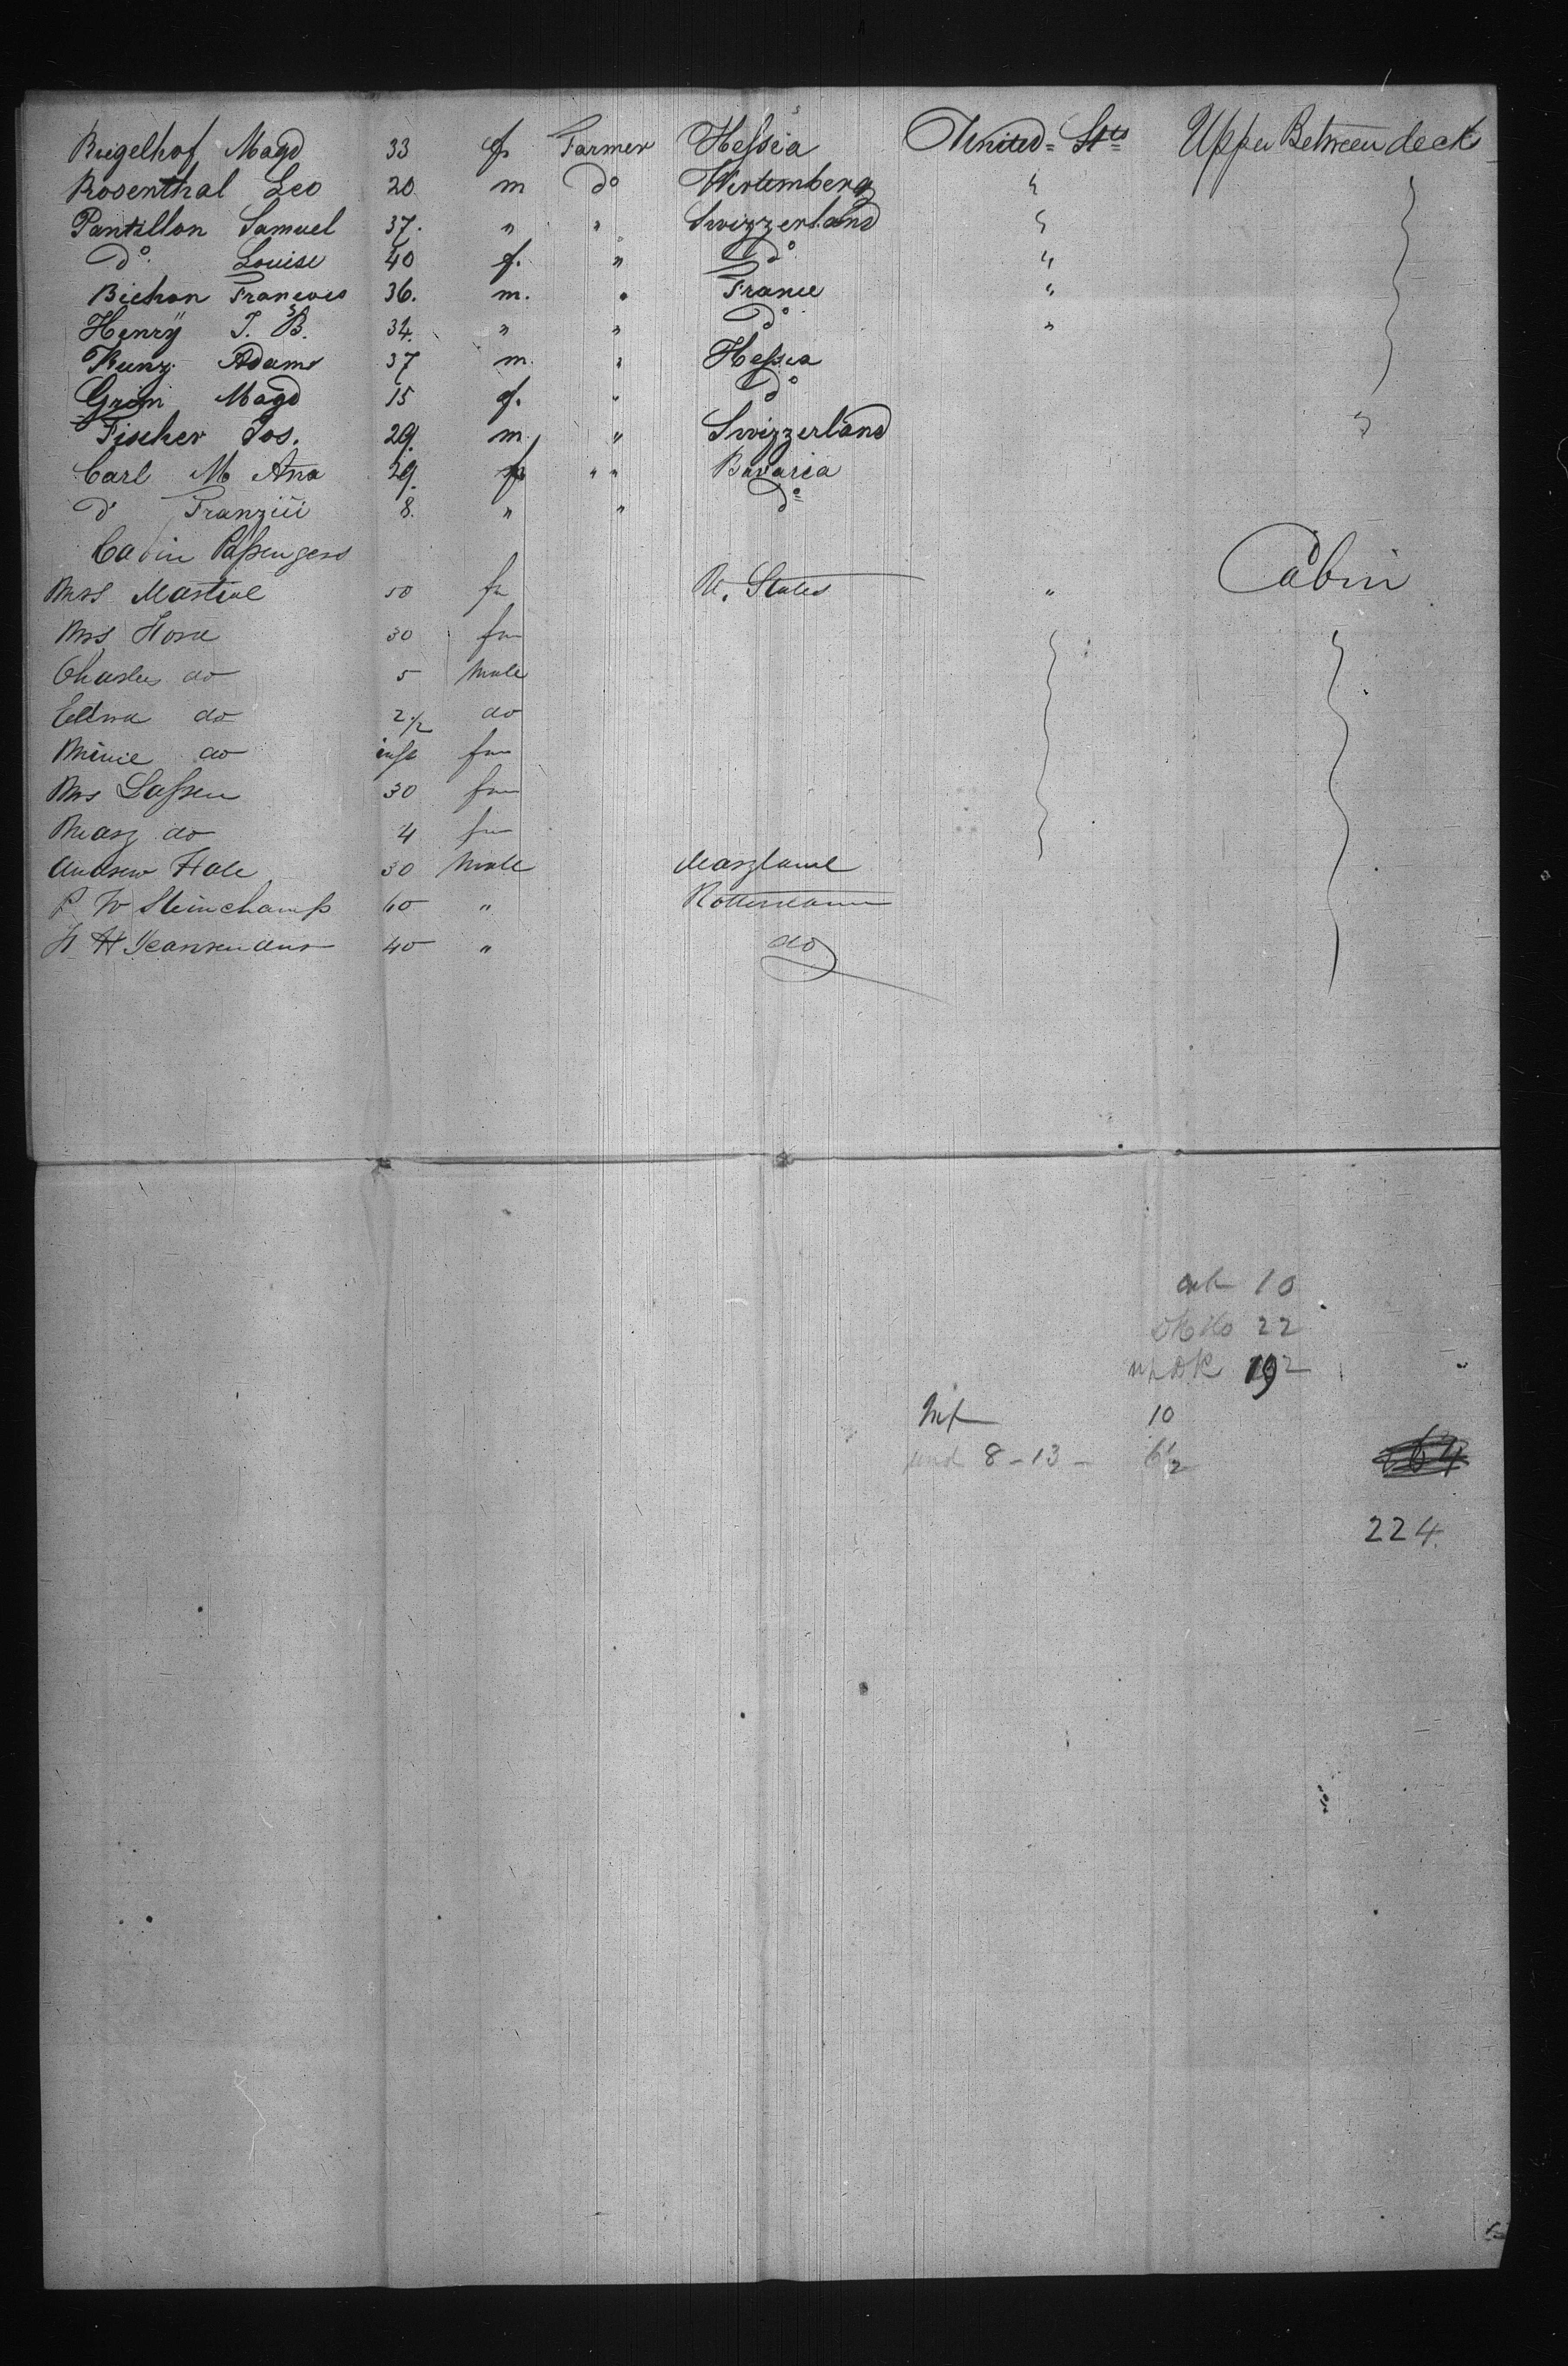 Bugelhof Magd 33 f Farmer Hessia United Sts Upper Between decks
Rosenthal Leo 20 m do Wirtemberg "
Pantillon Samuel 37. " " Swizzerland "
do Louise 40 f. " do "
Bichon Francois 36. m. " France "
Henry J. B. 34. " " do "
Kunz Adams 37 m. " Hessia
Grim Magd 15 f. " do
Fischer Jos. 29. m. " Swizzerland "
Carl M Ana 29. f " " Bavaria
do 8. " " do
Cabin Passengers
Mrs 50 fm U. States " Cabin
Mrs 30 fm
Charles do 5 Male
do 2 1/2 do
Minie do inft fm
Mrs Lassen 30 fm
Mary do 4 fm
Andrew Hale 30 Male Maryland
P W Steinchamp 60 " Rotterdam
H H 40 " do
cab 10
DK Ho 22
up DK 192
Inf 10
und 8 - 13 - 6 1/2
224